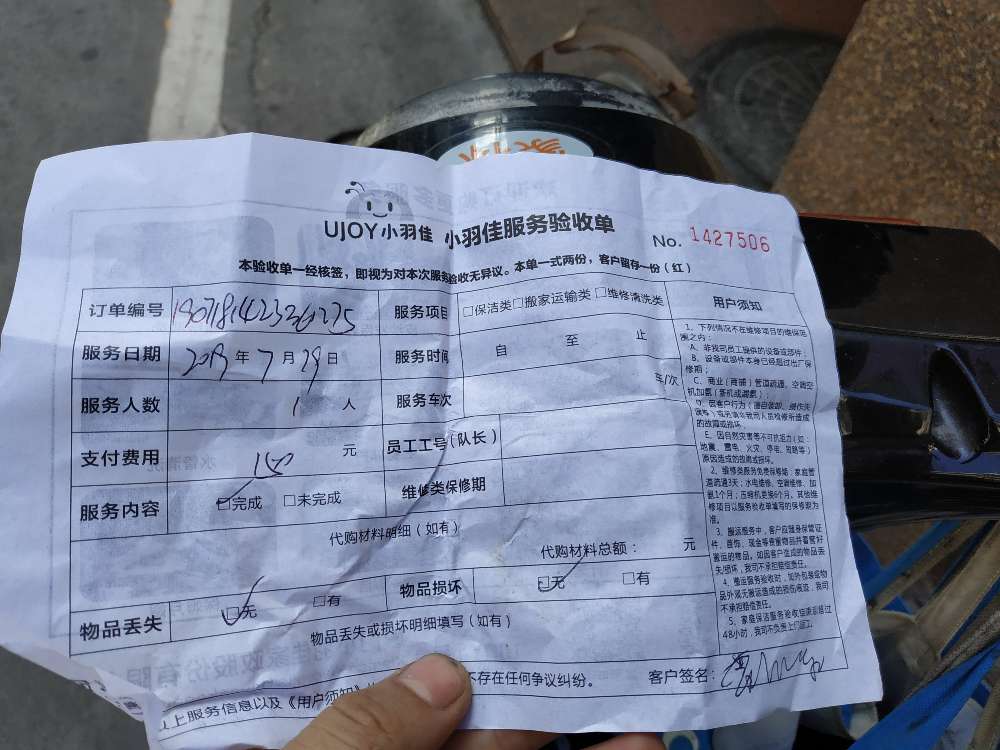 UJOY小羽佳 小羽佳服务验收单 No. 1427506
本验收单一经核签，即视为对本次服务验收无异议。本单一式两份，客户留存一份（红）
订单编号 服务项目 □保洁类□搬家运输类□维修清洗类 用户须知
服务日期 2019 年 7 月 29 日 服务时间 自 至 止
服务人数 1 人 服务车次 车/次
支付费用 150 元 员工工号（队长）
服务内容 □完成 □未完成 维修类保修期
代购材料明细（如有）
代购材料总额： 元
物品丢失 □无 □有 物品损坏 □无 □有
物品丢失或损坏明细填写（如有）
上服务信息以及《用户须知》 不存在任何争议纠纷。 客户签名：
1、下列情况不在维修项目的维保范
围之内：
A、非我司员工提供的设备或部件；
B、设备或部件本身已经超过出厂保
修期；
C、商业（商铺）管道疏通，空调空
机加氨（新机或漏氨）；
的故障或损坏。
E、因自然灾害等不可抗拒力（如：
地震、雷电、火灾、停电、短路等）
原因造成的故障或损坏。
2、维修类服务免费保修期：家庭管
道疏通3天；水电维修、空调维修、加
氨1个月；压缩机更换6个月。其他维
修项目以服务验收单填写的保修期为
准。
3、搬运服务中，客户应随身保管证
件、首饰、现金等贵重物品并看管好
搬运的物品，如因客户造成的物品丢
失/损坏，我司不承担赔偿责任。
4、搬运服务验收时，如外包装或物
品外观无搬运造成的损伤痕迹，我司
不承担赔偿责任。
5、家庭保洁服务验收结束后超过
48小时，我司不负责上门返工。